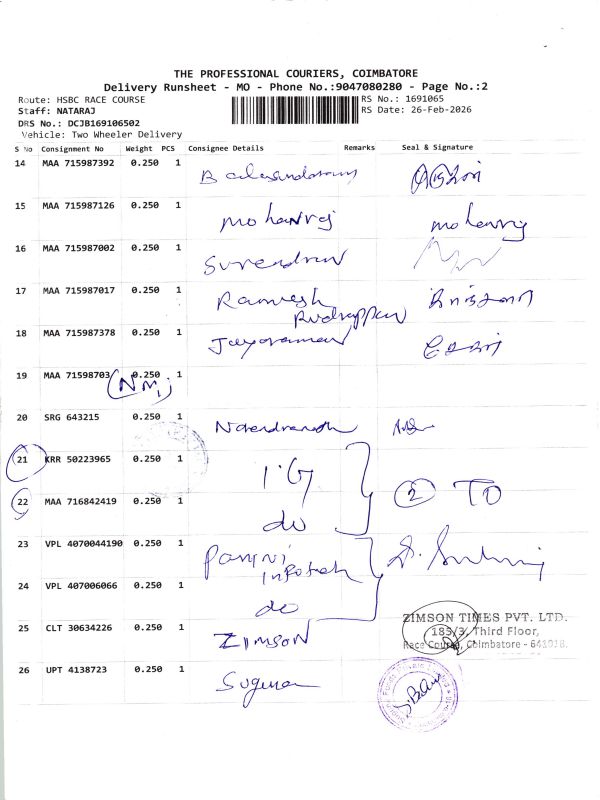 THE PROFESSIONAL COURIERS, COIMBATORE
Delivery Runsheet - MO - Phone No.:9047080280 - Page No.:2
Route: HSBC RACE COURSE
RS No.: 1691065
Staff: NATARAJ
RS Date: 26-Feb-2026
DRS No.: DCJB169106502
Vehicle: Two Wheeler Delivery
S No Consignment No Weight PCS Consignee Details Remarks Seal & Signature
14 MAA 715987392 0.250 1
15 MAA 715987126 0.250 1 mohanraj mohanraj
16 MAA 715987002 0.250 1 Surendran
17 MAA 715987017 0.250 1 Ramesh
Rudrappan
18 MAA 715987378 0.250 1 Jayaraman
19 MAA 71598703 0.250 1
20 SRG 643215 0.250 1
21 KRR 50223965 0.250 1 I.G
22 MAA 716842419 0.250 1 do 2 TO
23 VPL 4070044190 0.250 1 Infotech
24 VPL 407006066 0.250 1 do
25 CLT 30634226 0.250 1 ZIMSON
ZIMSON TIMES PVT. LTD.
185/3, Third Floor,
Race Course, Coimbatore - 641018.
26 UPT 4138723 0.250 1 Suguna